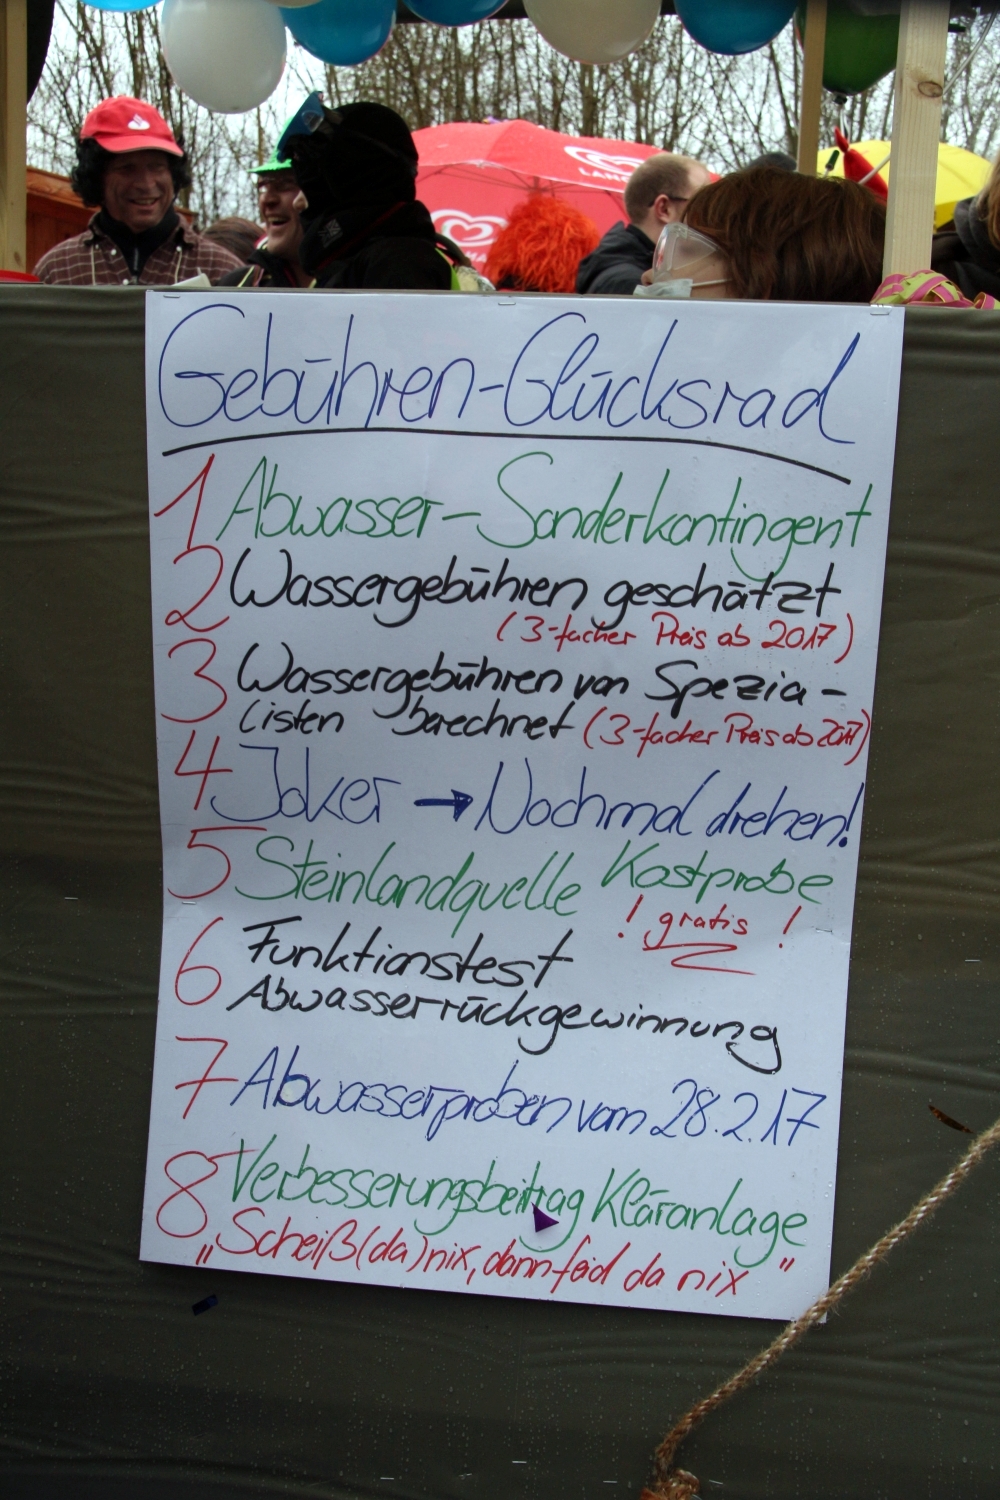 LANG
Gebühren-Glücksrad
1 Abwasser-Sonderkontingent
2 Wassergebühren geschätzt
(3-facher Preis ab 2017)
3 Wassergebühren von Spezia-
listen berechnet (3-facher Preis ab 2017)
4 Joker → Nochmal drehen!
5 Steinlandquelle Kostprobe
! gratis !
6 Funktionstest
Abwasserrückgewinnung
7 Abwasserproben vom 28.2.17
8 Verbesserungsbeitrag Kläranlage
„Scheiß(da)nix, dann feid da nix"